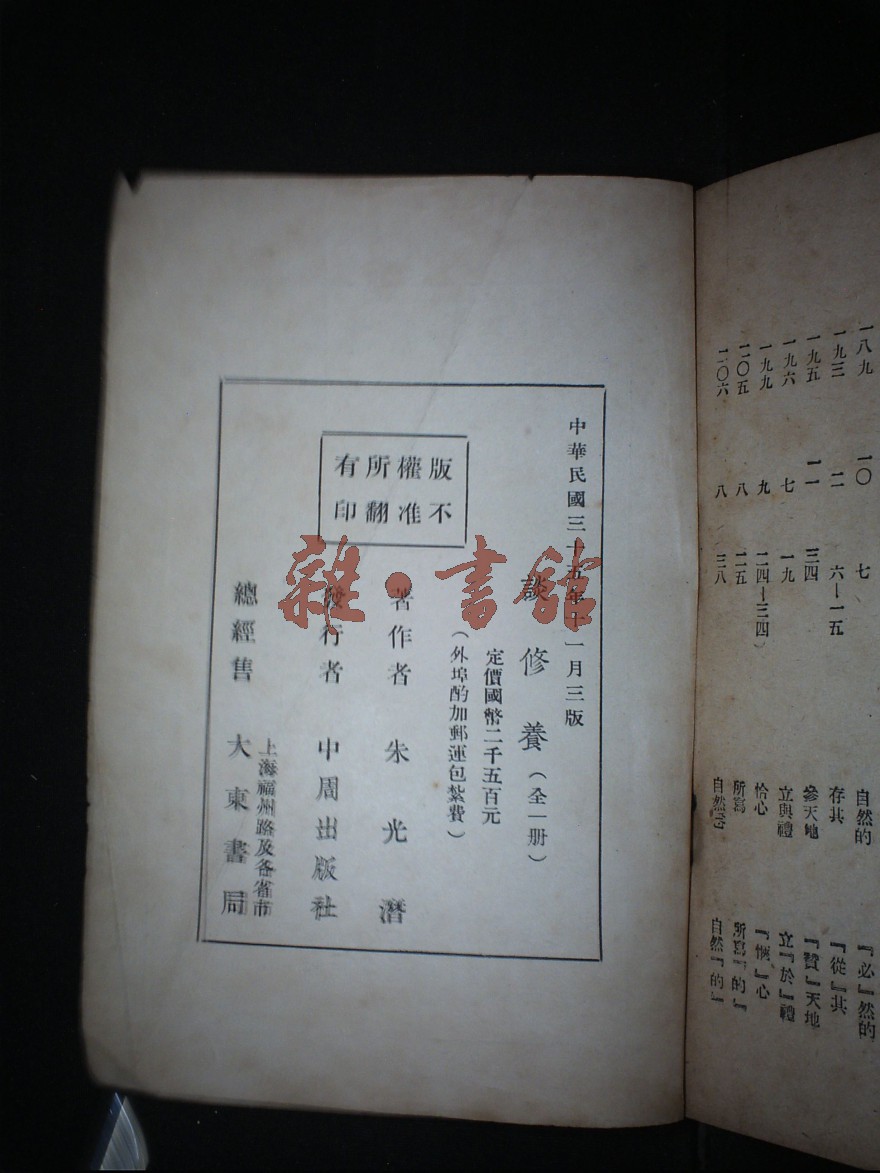 一八九 一〇 七 自然的 『必』然的
一九三 二 六－一五 存其 『從』其
一九五 一一 三四 參天地 『贊』天地
一九六 七 一九 立與禮 立『於』禮
一九九 九 二四－三四） 恰心 『愜』心
二〇五 八 二五 所寫 所寫『的』
二〇六 八 三八 自然 自然『的』
中華民國三十五年十一月三版
談修養（全一册）
定價國幣二千五百元
（外埠酌加郵運包紮費）
版權所有
不准翻印
著作者 朱光潛
發行者 中周出版社
上海福州路及各省市
總經售 大東書局
雜·書館